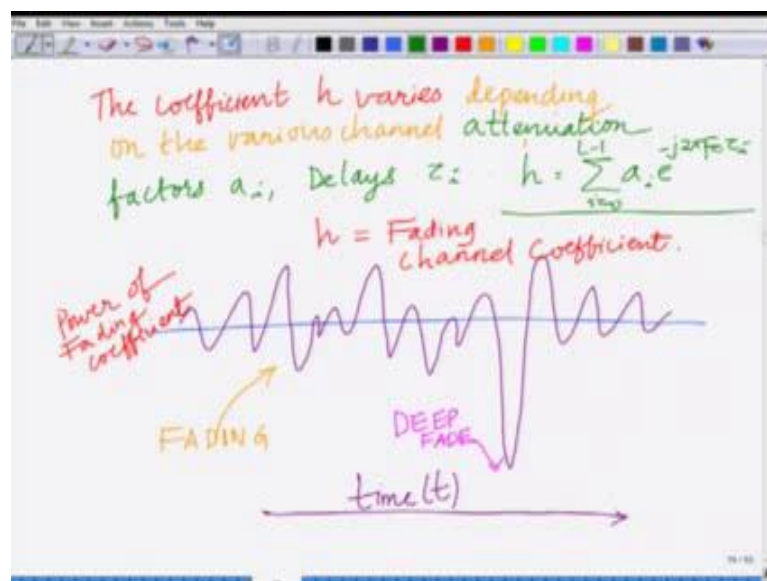 File Edit View Insert Actions Tools Help
The coefficient h varies depending
on the various channel attenuation
factors aᵢ, Delays τᵢ h = Σ_{i=0}^{L-1} aᵢ e^{-j2πFcτᵢ}
h = Fading
channel coefficient.
Power of
Fading
coefficient
FADING
DEEP
FADE
time(t)